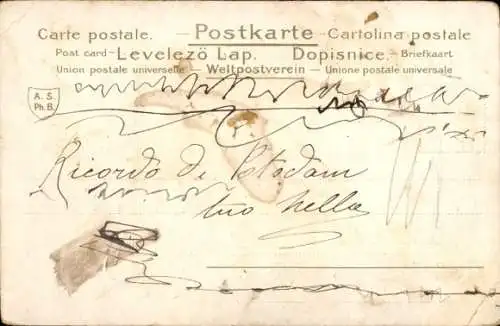 Carte postale. — Postkarte — Cartolina postale
Post card — Levelező Lap. Dopisnice. — Briefkaart
Union postale universelle — Weltpostverein — Unione postale universale
A. S.
Ph. B.
Ricordo di Potsdam
tuo Nella